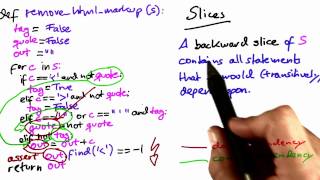 def remove_html_markup(s):
tag = False
quote = False
out = ""
for c in s:
if c == '<' and not quote:
tag = True
elif c == '>' and not quote:
tag = False
elif c == '"' or c == "'" and tag:
quote = not quote
elif not tag:
out = out + c
assert out.find('<') == -1
return out
Slices
A backward slice of S
contains all statements
that S would (transitively)
depend upon.